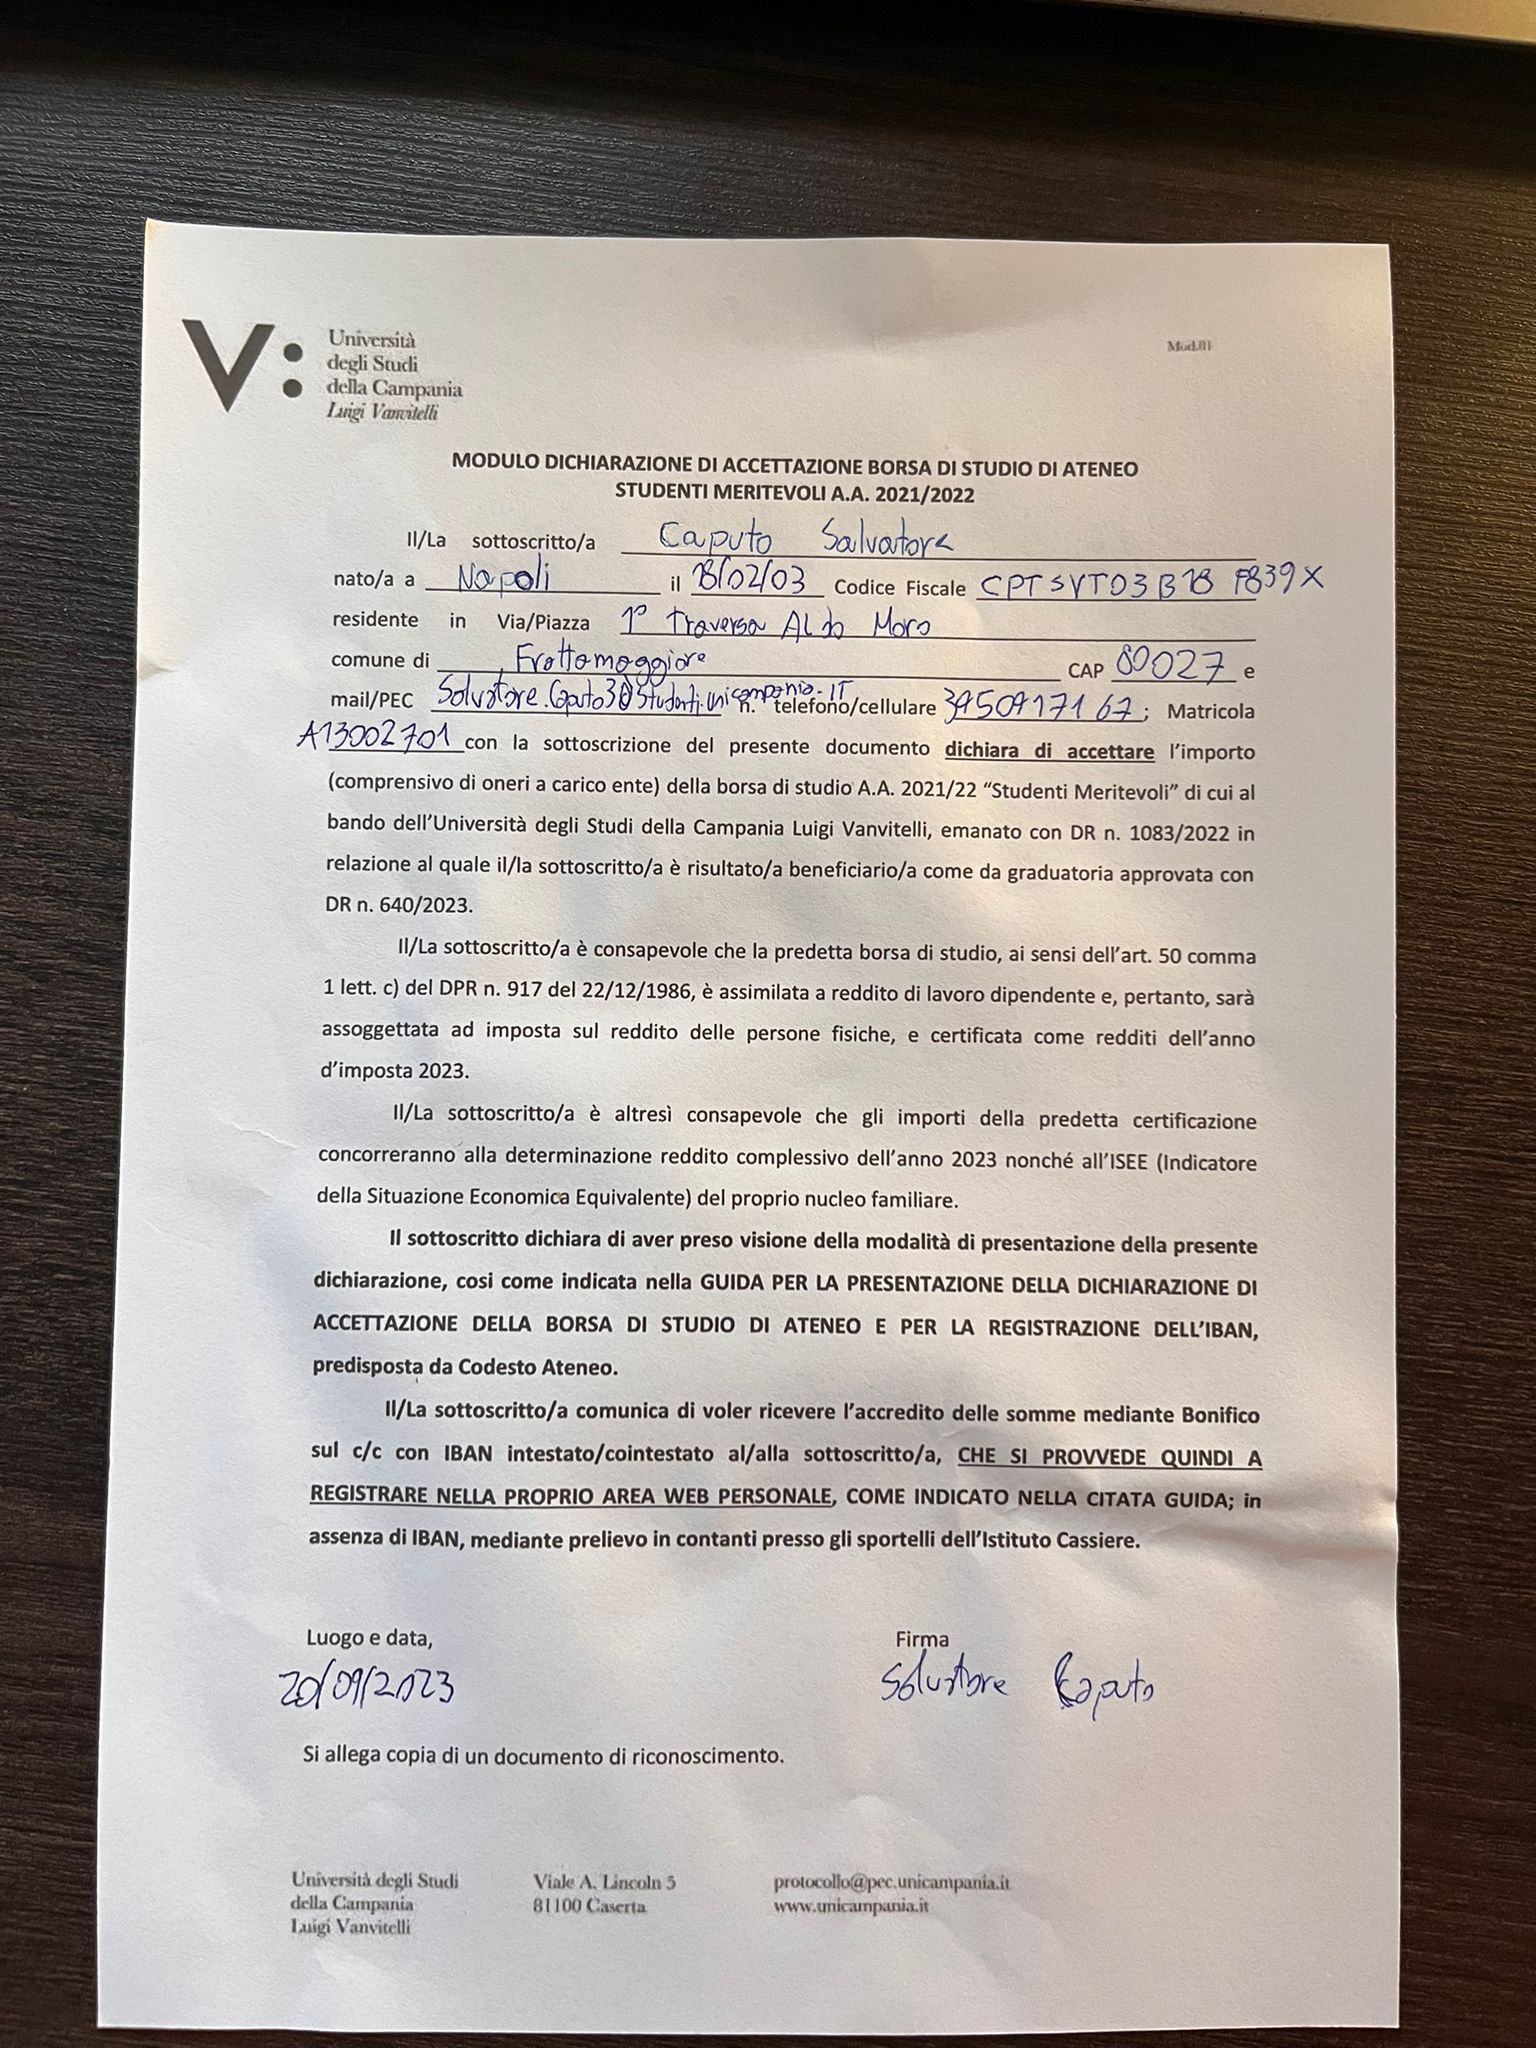 Università
degli Studi
della Campania
Luigi Vanvitelli
Mod.81
MODULO DICHIARAZIONE DI ACCETTAZIONE BORSA DI STUDIO DI ATENEO
STUDENTI MERITEVOLI A.A. 2021/2022
Il/La sottoscritto/a Caputo Salvatore
nato/a a Napoli il 18/02/03 Codice Fiscale CPTSVT03B18F839X
residente in Via/Piazza 1° Traversa Aldo Moro
comune di Frattamaggiore CAP 80027 e
mail/PEC Salvatore.Caputo3@studenti.unicampania.IT n. telefono/cellulare 3450917167; Matricola
A13002701 con la sottoscrizione del presente documento dichiara di accettare l'importo
(comprensivo di oneri a carico ente) della borsa di studio A.A. 2021/22 “Studenti Meritevoli” di cui al
bando dell'Università degli Studi della Campania Luigi Vanvitelli, emanato con DR n. 1083/2022 in
relazione al quale il/la sottoscritto/a è risultato/a beneficiario/a come da graduatoria approvata con
DR n. 640/2023.
Il/La sottoscritto/a è consapevole che la predetta borsa di studio, ai sensi dell'art. 50 comma
1 lett. c) del DPR n. 917 del 22/12/1986, è assimilata a reddito di lavoro dipendente e, pertanto, sarà
assoggettata ad imposta sul reddito delle persone fisiche, e certificata come redditi dell'anno
d'imposta 2023.
Il/La sottoscritto/a è altresì consapevole che gli importi della predetta certificazione
concorreranno alla determinazione reddito complessivo dell'anno 2023 nonché all'ISEE (Indicatore
della Situazione Economica Equivalente) del proprio nucleo familiare.
Il sottoscritto dichiara di aver preso visione della modalità di presentazione della presente
dichiarazione, cosi come indicata nella GUIDA PER LA PRESENTAZIONE DELLA DICHIARAZIONE DI
ACCETTAZIONE DELLA BORSA DI STUDIO DI ATENEO E PER LA REGISTRAZIONE DELL'IBAN,
predisposta da Codesto Ateneo.
Il/La sottoscritto/a comunica di voler ricevere l'accredito delle somme mediante Bonifico
sul c/c con IBAN intestato/cointestato al/alla sottoscritto/a, CHE SI PROVVEDE QUINDI A
REGISTRARE NELLA PROPRIO AREA WEB PERSONALE, COME INDICATO NELLA CITATA GUIDA; in
assenza di IBAN, mediante prelievo in contanti presso gli sportelli dell'Istituto Cassiere.
Luogo e data, Firma
20/09/2023 Salvatore Caputo
Si allega copia di un documento di riconoscimento.
Università degli Studi
della Campania
Luigi Vanvitelli
Viale A. Lincoln 5
81100 Caserta
protocollo@pec.unicampania.it
www.unicampania.it